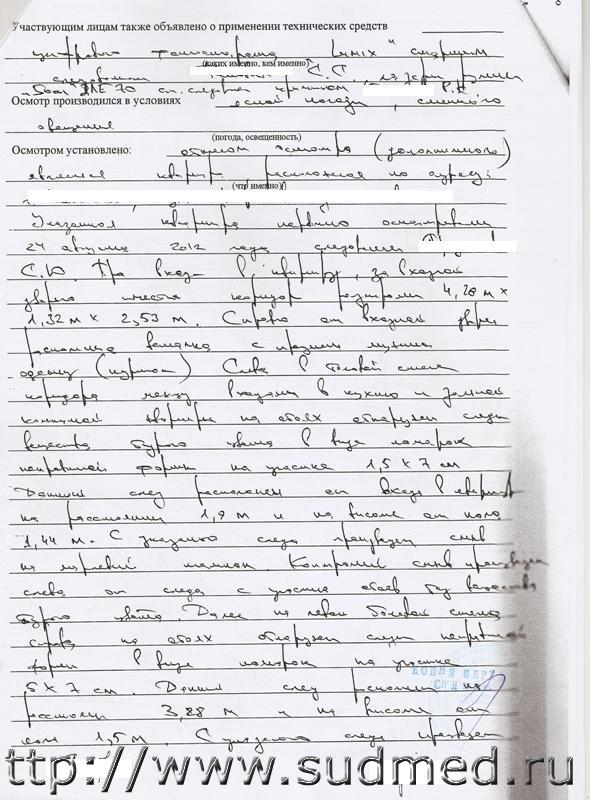 Участвующим лицам также объявлено о применении технических средств
цифрового фотоаппарата "Lumix" старшим
(каких именно, кем именно)
следователем С.С.
Осмотр производился в условиях ясной погоды, смешанного
освещения
(погода, освещенность)
Осмотром установлено: объектом осмотра (дополнительного)
является квартира расположенная по адресу:
(что именно)
Указанная квартира первично осматривалась
24 августа 2012 года следователем
С.Ю. При входе в квартиру, за входной
дверью имеется коридор размерами 4,28 м х
1,32 м х 2,53 м. Справа от входной двери
расположена вешалка с предметами
одежды (куртки) Слева в боковой стене
коридора между входами в кухню и
комнатой квартиры на обоях обнаружен след
вещества бурого цвета в виде помарок
неправильной формы на участке 1,5 х 7 см
Данный след расположен от входа в квартиру
на расстоянии 1,9 м и на высоте от пола
1,44 м. С указанного следа произведен смыв
на марлевый тампон. Контрольный смыв произведен
слева от следа с участка обоев без вещества
бурого цвета. Далее на левой боковой стене
справа на обоях обнаружен след неправильной
формы в виде помарок на участке
5 х 7 см. Данный след расположен на
расстоянии 3,28 м и на высоте от
пола 1,5 м. С указанного следа произведен
КОПИЯ ВЕРНА
ttp://www.sudmed.ru